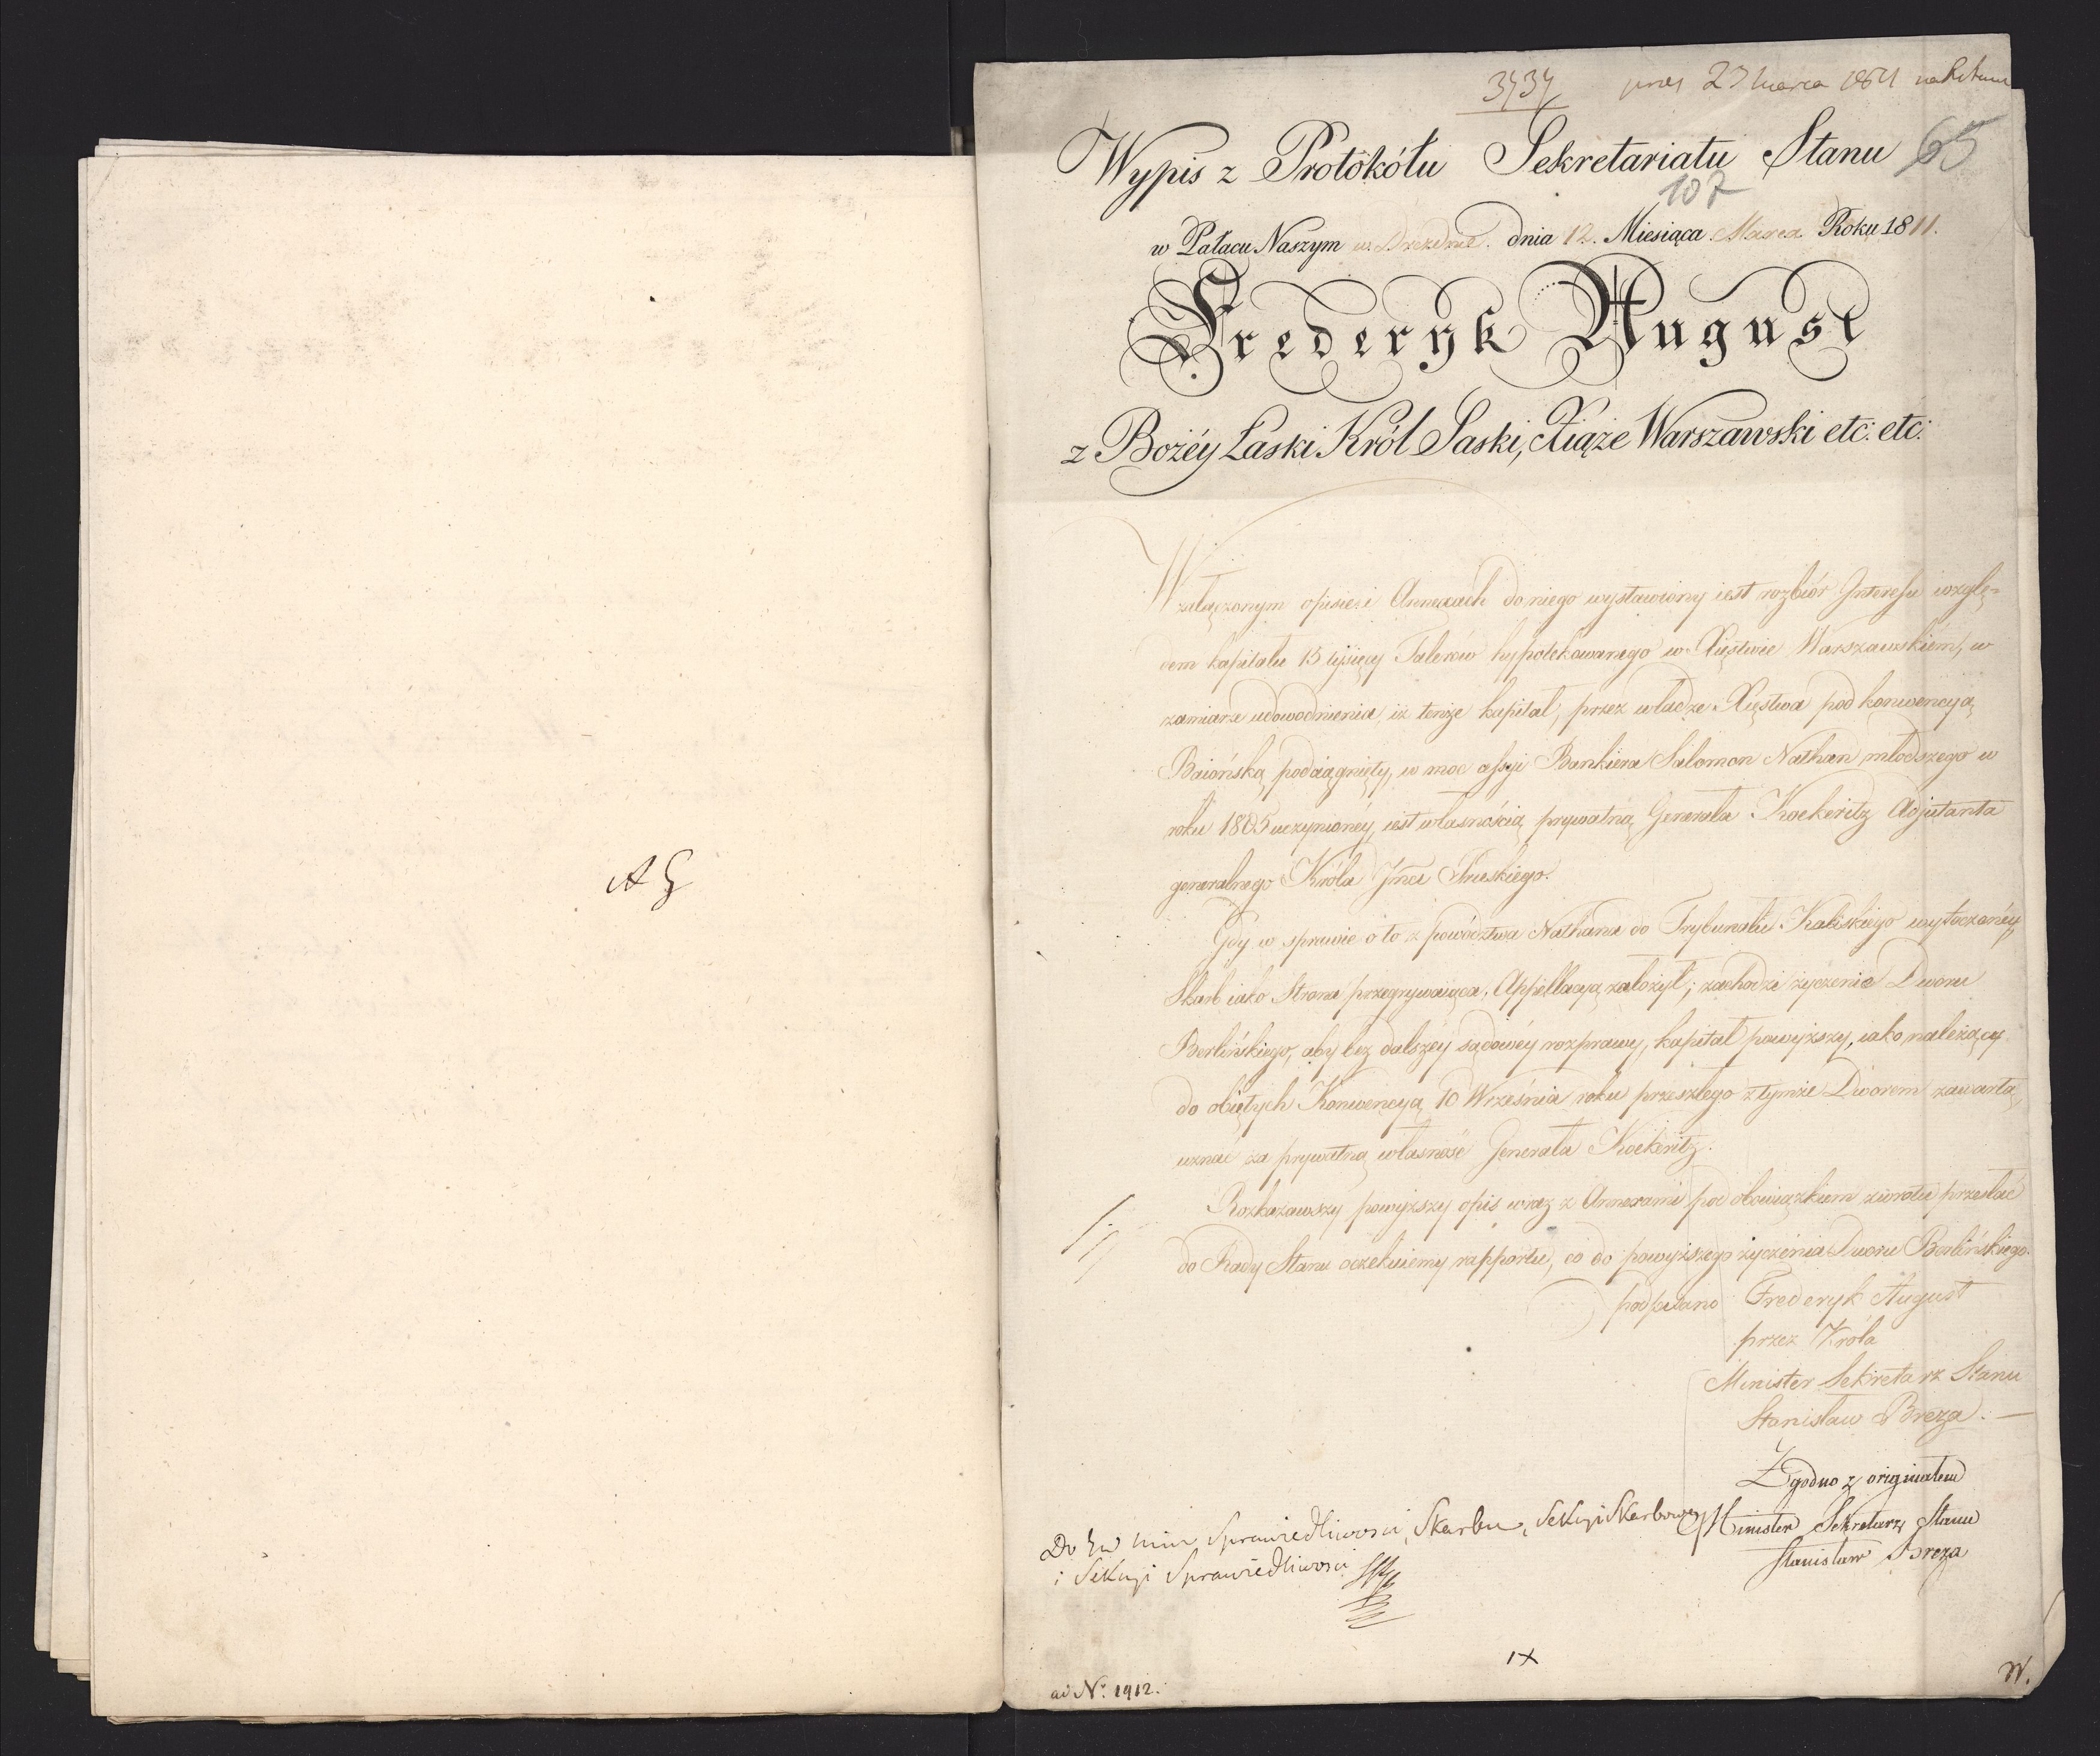 A G
3737 23 marca
Wypis z Protokółu Sekretariatu Stanu 65
107
w Pałacu Naszym w Dreznie. dnia 12. Miesiąca Marca Roku 1811.
Frederyk August
z Bożéy Łaski Król Saski, Xiąże Warszawski etc: etc:
W załączonym opisie i Annexach do niego wystawiony iest rozbiór Interessu wzglę-
dem kapitału 15 tysięcy Talerów hypotekowanego w Xięstwie Warszawskiém, w
zamiarze udowodnienia, iż tenże kapitał, przez władze Xięstwa pod konwencyą
Baiońską podciągnięty, w moc cessyi Bankiera Salomon Nathan młodszego w
roku 1805 uczynionéy, iest własnością prywatną Generała Koekeritz Adjutanta
generalnego Króla Jmci Pruskiego.
Gdy w sprawie o to z powództwa Nathana do Trybunału Kaliskiego wytoczonéy,
Skarb iako Strona przegrywaiąca, Appellacyą założył; zachodzi życzenie Dworu
Berlińskiego, aby bez dalszéy sądowéy rozprawy, kapitał powyższy, iako należący
do obiętych Konwencyą 10 Września roku przeszłego z tymże Dworem zawartą,
uznać za prywatną własność Generała Koekeritz.
Rozkazawszy powyższy opis wraz z Annexami pod obowiązkiem zwrotu przesłać
do Rady Stanu oczekuiemy rapportu, co do powyższego życzenia Dworu Berlińskiego.
podpisano Frederyk August
przez Króla
Minister Sekretarz Stanu
Stanisław Breza. —
Zgodno z originałem
Minister Sekretarz Stanu
Stanisław Breza
Do Min Sprawiedliwosci, Skarbu, Sekcyi Skarbowey
i Sekcyi Sprawiedliwosci
IX
ad N: 1912.
W.